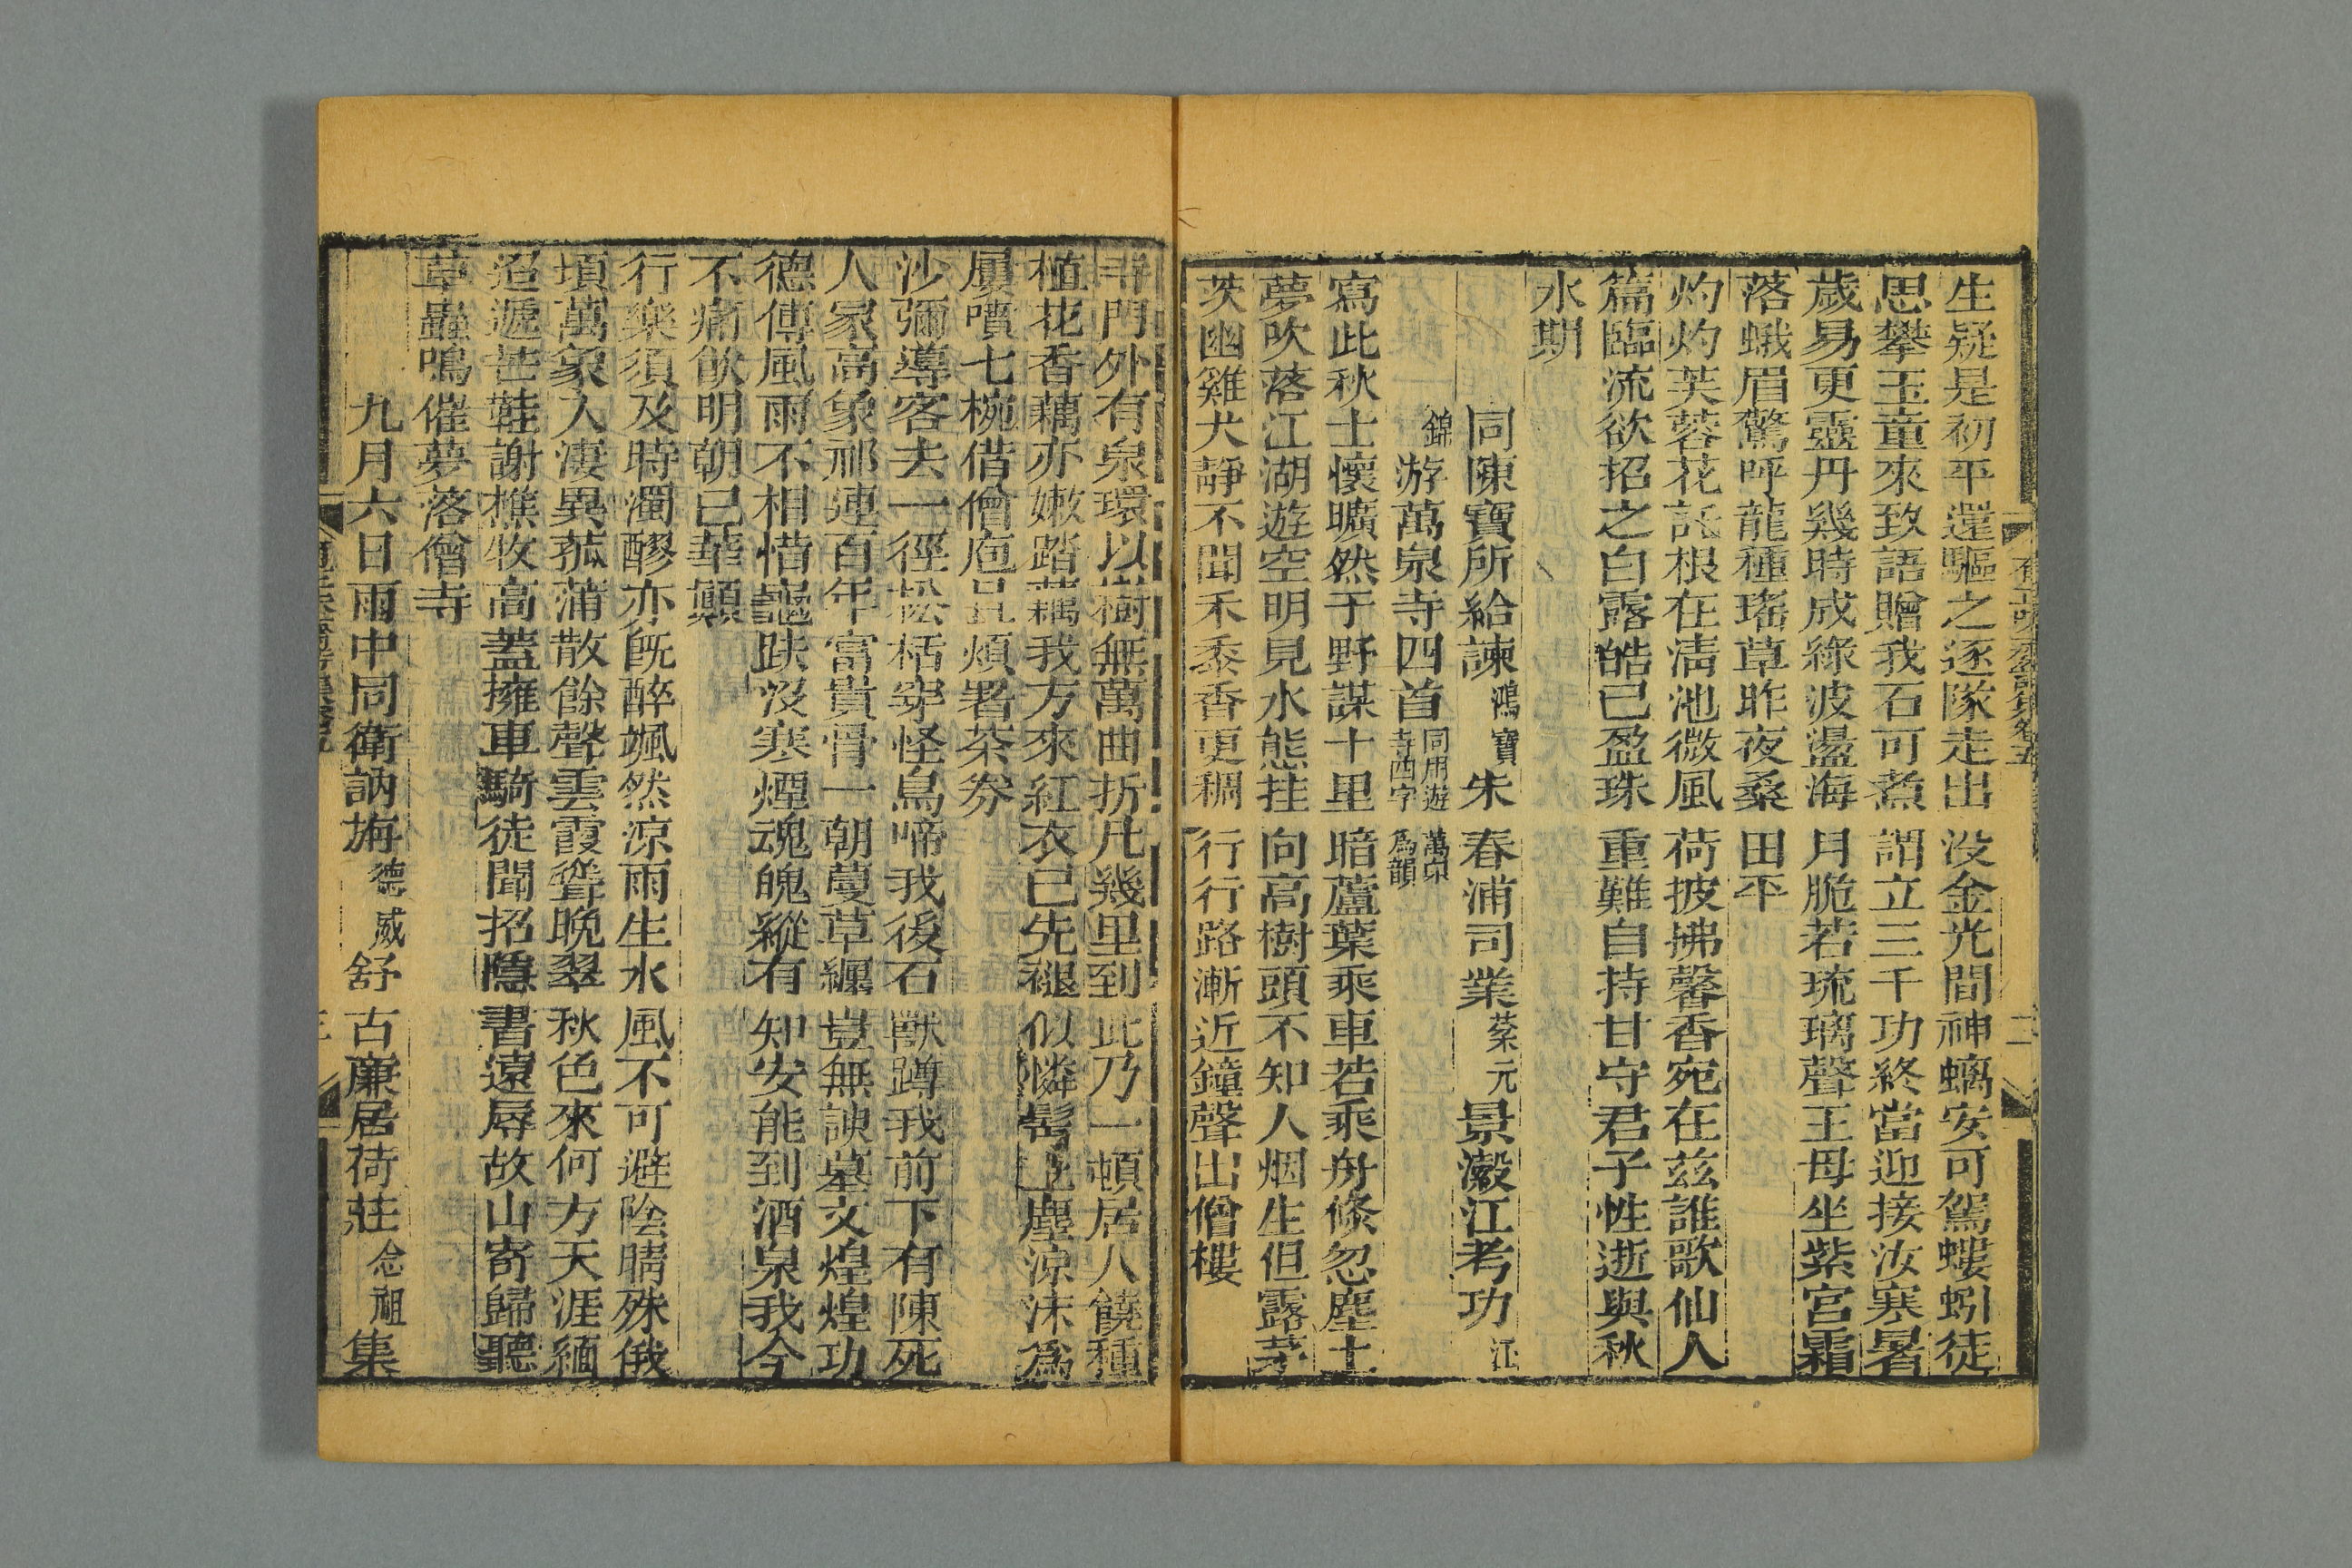 生疑是初平還驅之逐隊走出没金光間神螭安可駕螻蚓徒
思攀玉童來致語贈我石可煮謂立三千功終當迎接汝寒暑
歲易更靈丹幾時成綠波盪海月脆若琉璃聲王母坐紫宮霜
落蛾眉驚呼龍種瑤草昨夜桑田平
灼灼芙蓉花託根在淸池微風荷披拂馨香宛在茲誰歌仙人
篇臨流欲招之白露皓已盈珠重難自持甘守君子性逝與秋
水期
同陳寶所給諫鴻寶朱春浦司業蘂元景瀫江考功江
錦游萬泉寺四首同用遊萬泉寺四字爲韻
寫此秋士懷曠然于野謀十里暗蘆葉乘車若乘舟倏忽塵土
夢吹落江湖遊空明見水態挂向高樹頭不知人烟生但露茅
茨幽雞犬靜不聞禾黍香更稠行行路漸近鐘聲出僧樓
寺門外有泉環以樹無萬曲折凡幾里到此乃一頓居人饒種
植花香藕亦嫩踏藕我方來紅衣已先褪似憐髩塵涼沫爲
屢噴七椀借僧庖且煩署茶券
沙彌導客去一徑松栝穿怪鳥啼我後石獸蹲我前下有陳死
人冢高象祁連百年富貴骨一朝蔓草纏豈無諛墓文煌煌功
德傅風雨不相惜龜趺沒寒煙魂魄縱有知安能到酒泉我今
不痛飲明朝已華顚
行樂須及時濁醪亦旣醉颯然涼雨生水風不可避陰晴殊俄
頃萬象入淒異菰蒲散餘聲雲霞聳晚翠秋色來何方天涯緬
迢遞芒鞋謝樵牧高蓋擁車騎徒聞招隱書遠辱故山寄歸聽
草蟲鳴催夢落僧寺
九月六日雨中同衞訥㫋德威舒古廉居荷莊念祖集